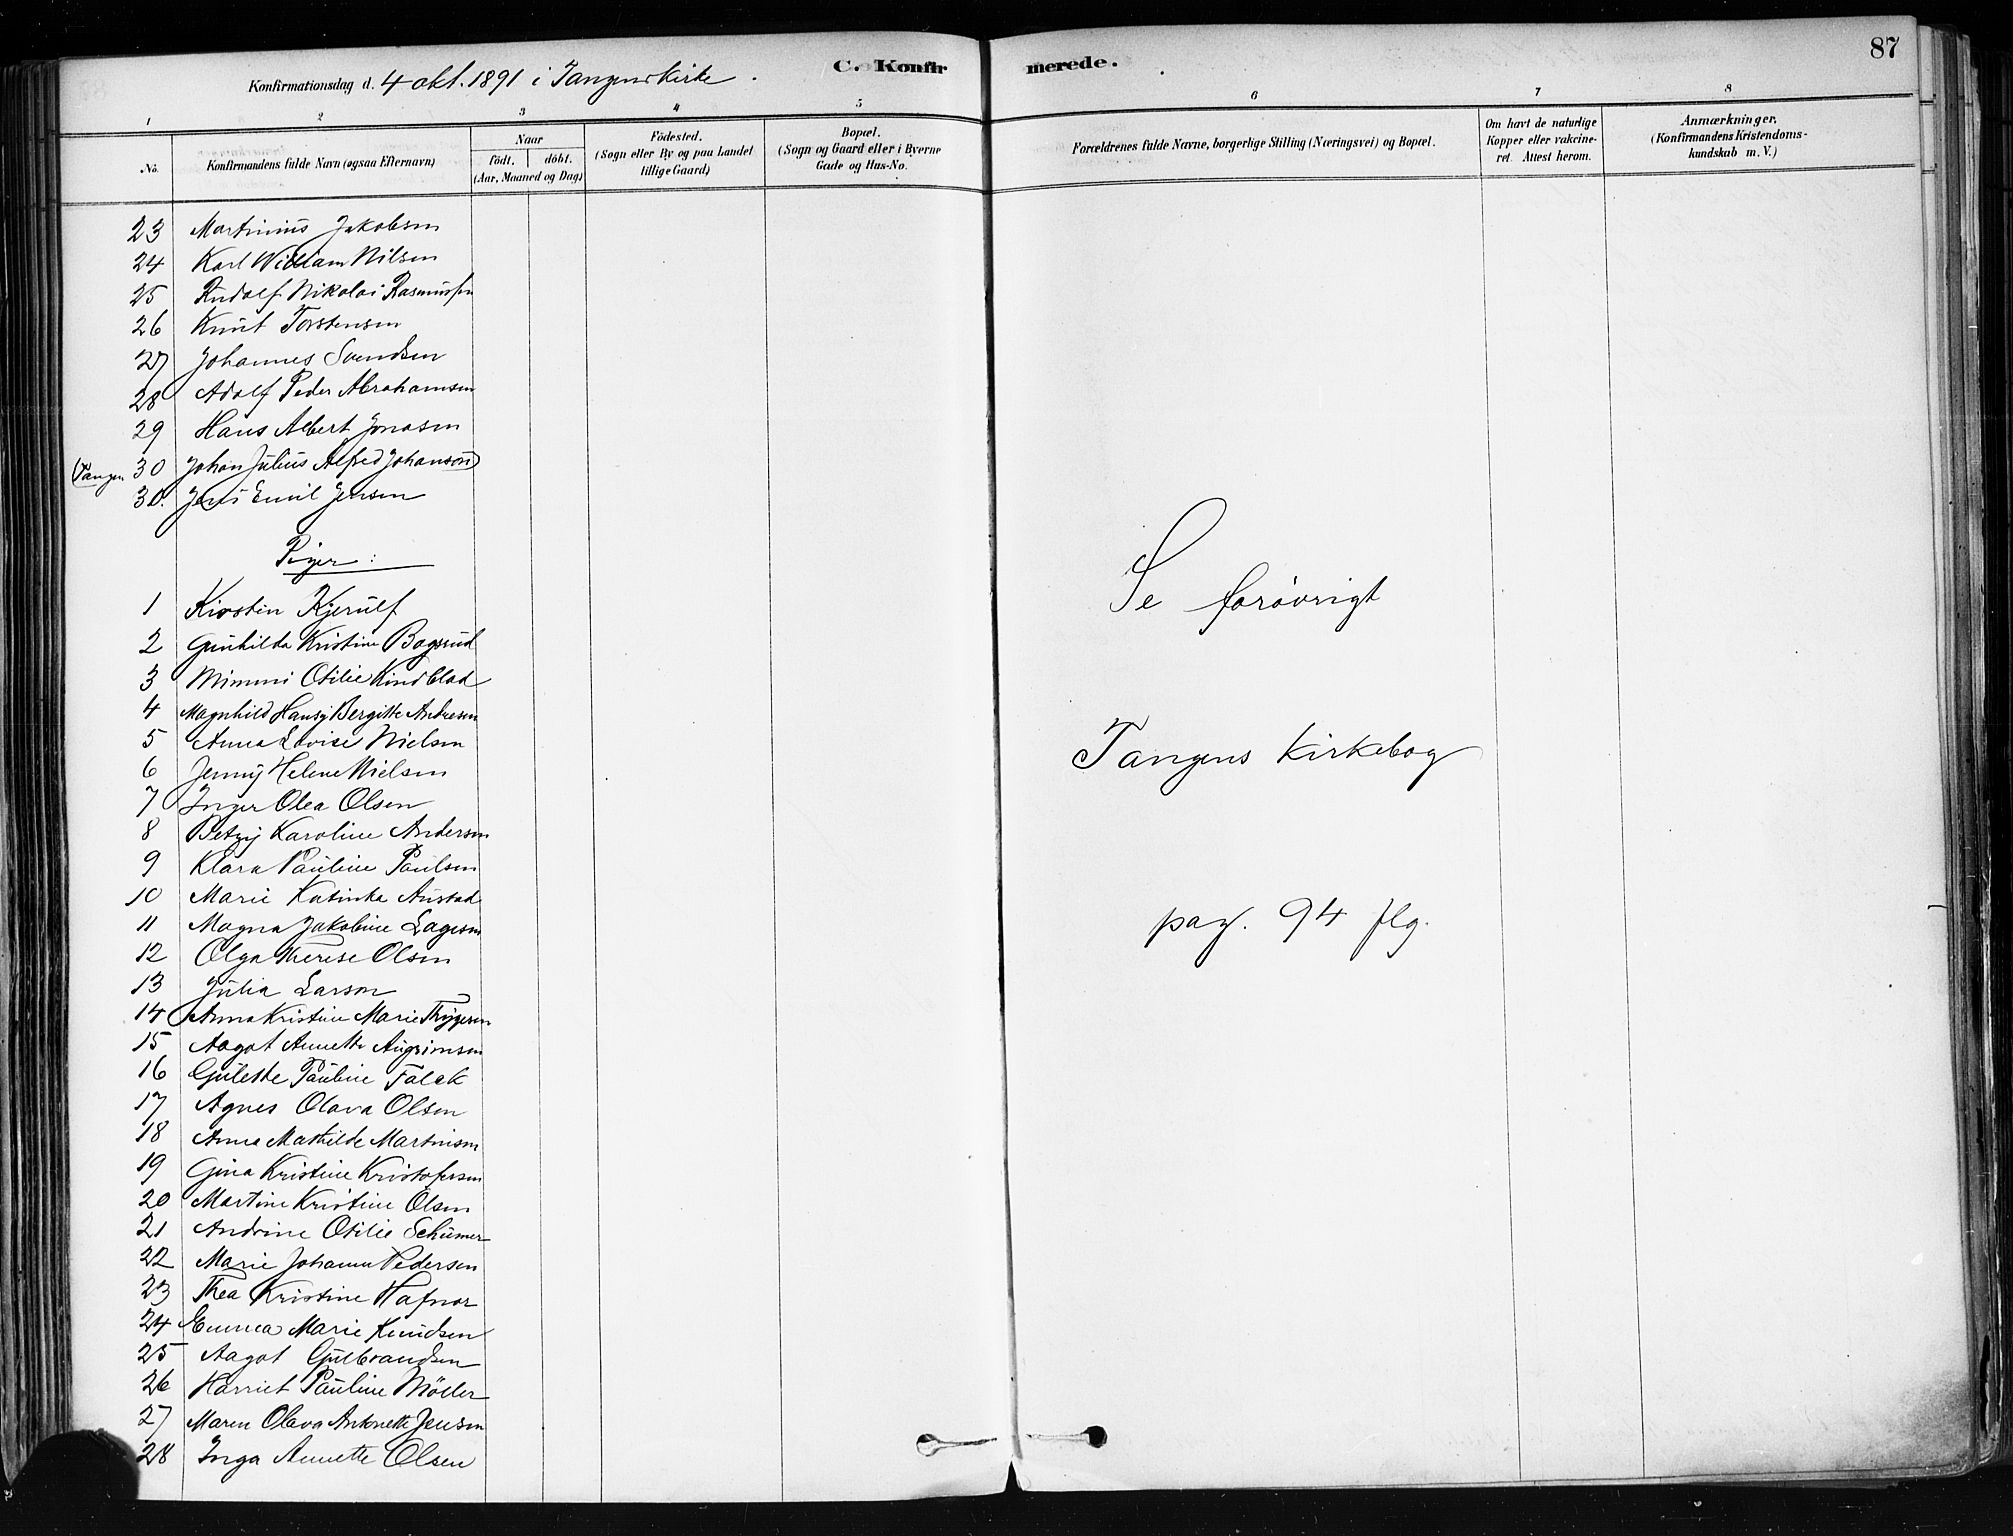 87
C. Konfir merede.
Konfirmationsdag d. 4 okt. 1891 i Tangens kirke.
1 2 3 4 5 6 7 8
No. Konfirmandens fulde Navn (ogsaa Efternavn) Naar födt. döbt. (Aar, Maaned og Dag)
Födested. (Sogn eller By og paa Landet tillige Gaard)
Bopæl. (Sogn og Gaard eller i Byerne Gade og Hus-No.
Forældrenes fulde Navne, borgerlige Stilling (Næringsvei) og Bopæl.
Om havt de naturlige Kopper eller vakcineret. Attest herom.
Anmærkninger. (Konfirmandens Kristendomskundskab m. V.)
23 Martinius Jakobsen
24 Karl William Nilsen
25 Rudolf Nikolai Rasmussen
26 Knut Torstensen
27 Johannes Svendsen
28 Adolf Peder Abrahamsen
29 Hans Albert Jonasen
(Tangen 30 Johan Julius Alfred Johanson)
30. Jens Emil Jensen
Piger:
1 Kirsten Kjerulf
2 Gunhilda Kristine Bagsrud
3 Mimmi Otilie Kindblad
4 Magnhild Hansy Bergitte Andresen
5 Anna Lovise Nielsen
6 Jenny Helene Nielsen
7 Inger Olea Olsen
8 Betzy Karoline Andersen
9 Klara Pauline Paulsen
10 Marie Katinka Austad
11 Magna Jakobine Lagesen
12 Olga Therese Olsen
13 Julia Larson
14 Anna Kristine Marie Thygesen
15 Aagot Annette Augrimsen
16 Gulette Pauline Falck
17 Agnes Olava Olsen
18 Anna Mathilde Martinisen
19 Gina Kristine Kristofersen
20 Martine Kristine Olsen
21 Andrine Otilie Schumer
22 Marie Johanne Pedersen
23 Thea Kristine Hafnor
24 Emma Marie Knudsen
25 Aagot Gulbrandsen
26 Harriet Pauline Möller
27 Maren Olava Antonette Jensen
28 Inga Annette Olsen
Se forøvrigt
Tangens Kirkebog
pag. 94 flg.